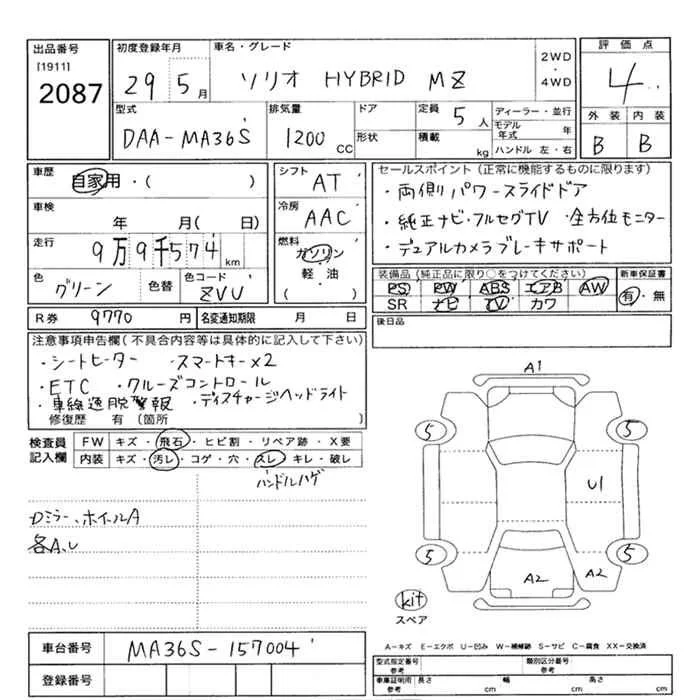 出品番号
[1911]
2087
初度登録年月
29 5 月
車名・グレード
ソリオ HYBRID MZ
2WD
・
4WD
評価点
4
外装 内装
B B
型式
DAA-MA36S
排気量
1200 CC
ドア
形状
定員 5 人
積載 kg
ディーラー・並行
モデル年式 年
ハンドル 左・右
車歴
自家用・( )
車検
年 月( 日)
走行
9万9千574 km
色
グリーン 色替
色コード
ZVU
シフト
AT
冷房
AAC
燃料
ガソリン
軽・油
( )
セールスポイント (正常に機能するものに限ります)
・両側パワースライドドア
・純正ナビ・フルセグTV ・全方位モニター
・デュアルカメラブレーキサポート
装備品 (純正品に限り○をつけてください)
PS PW ABS エアB AW
SR ナビ TV カワ
新車保証書
有・無
R券 9770 円 名変通知期限 月 日
後日品
注意事項申告欄 (不具合内容等は具体的に記入して下さい)
・シートヒーター ・スマートキー×2
・ETC ・クルーズコントロール
・車線逸脱警報 ・ディスチャージヘッドライト
修復歴 有 (箇所 )
検査員
記入欄
FW キズ・飛石・ヒビ割・リペア跡・X要
内装 キズ・汚レ・コゲ・穴・スレ・キレ・破レ
ハンドルハゲ
Dミラー、ホイールA
各A、U
A1
5 5
U1
5 5
A2 A2
kit
スペア
車台番号 MA36S-157004
登録番号
A-キズ E-エクボ U-凹み W-補修跡 S-サビ C-腐食 XX-交換済
型式指定番号
参考
類別区分番号
車車証明用
参考
長さ cm 幅 cm 高さ cm